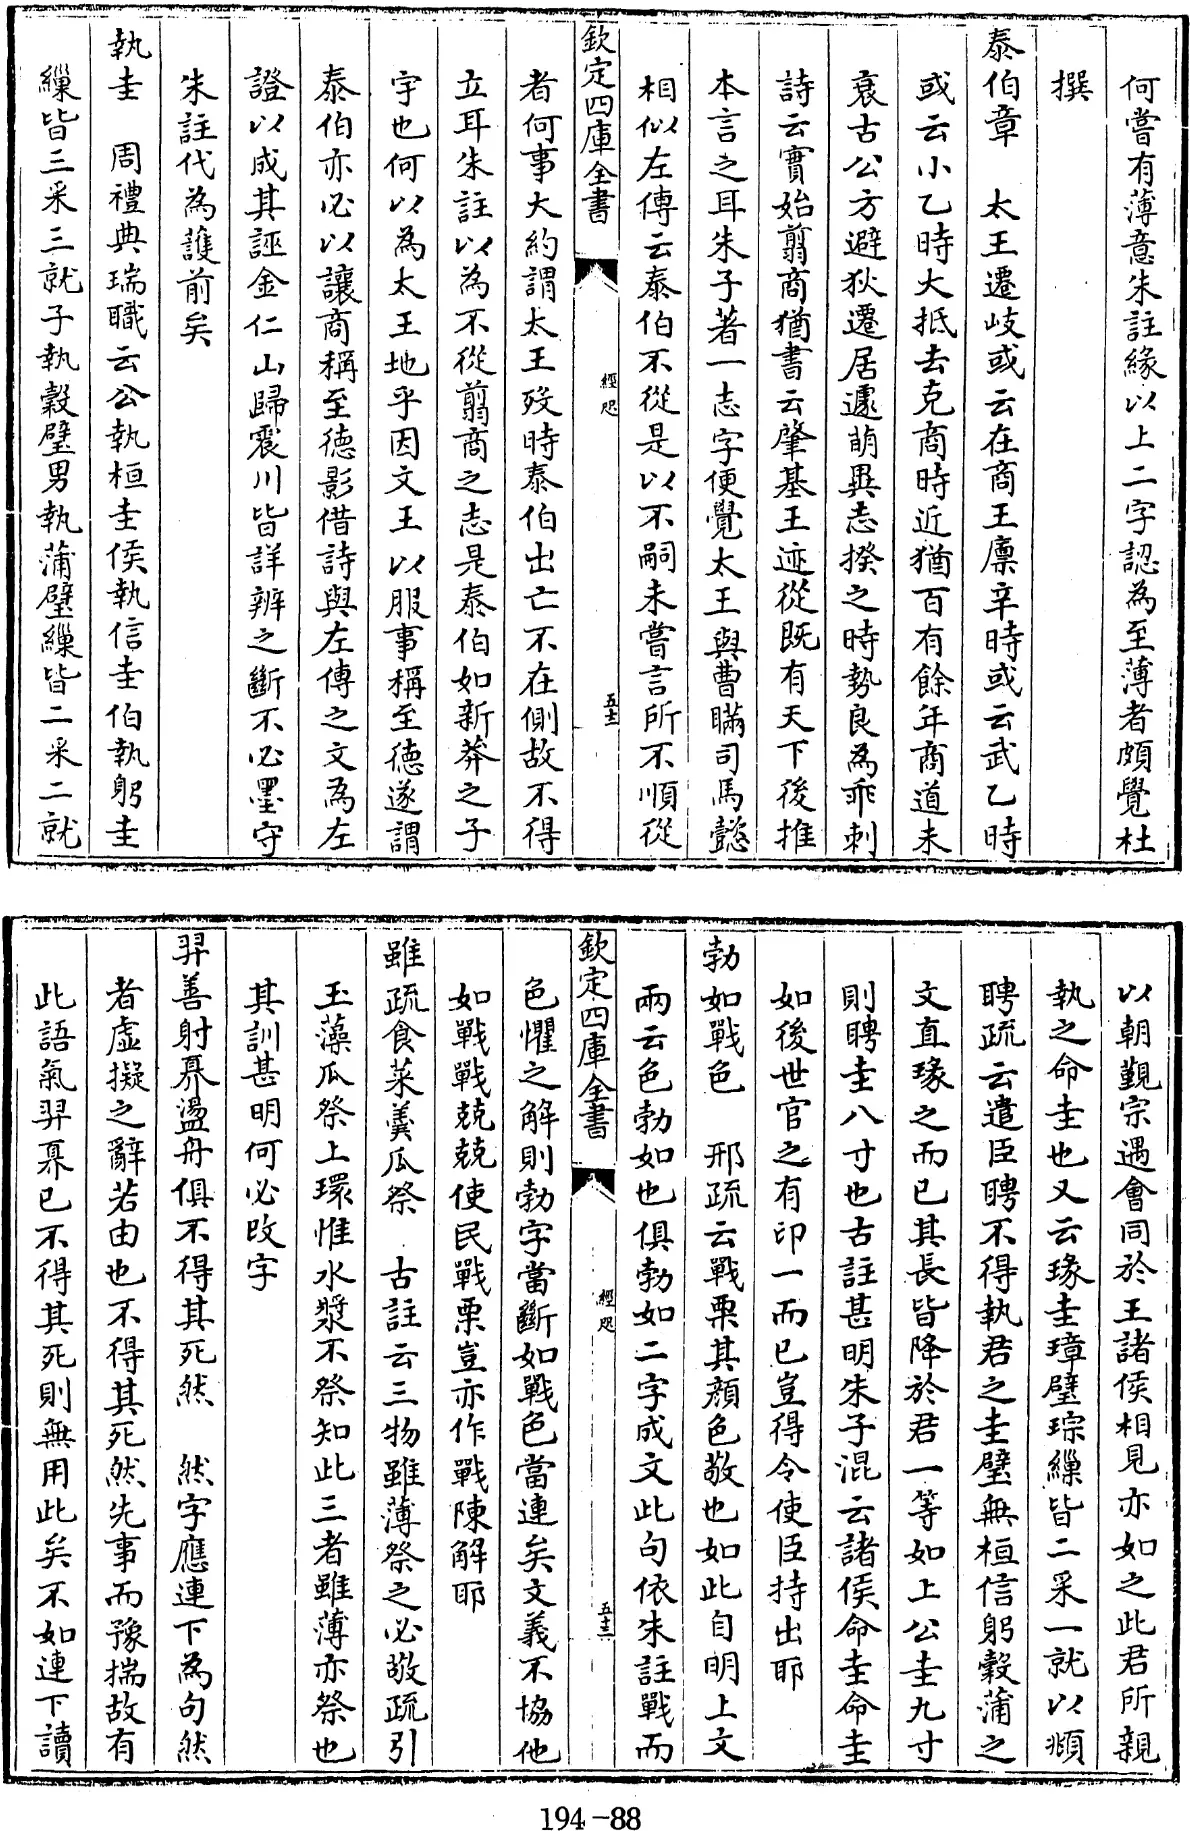 何嘗有薄意朱註緣以上二字認為至薄者頗覺杜
撰
泰伯章　太王遷岐或云在商王廪辛時或云武乙時
或云小乙時大抵去克商時近猶百有餘年商道未
衰古公方避狄遷居遽萌異志揆之時勢良為乖刺
詩云實始翦商猶書云肇基王迹從既有天下後推
本言之耳朱子著一志字便覺太王與曹瞞司馬懿
相似左傳云泰伯不從是以不嗣未嘗言所不順從
欽定四庫全書
經咫
五十二
者何事大約謂太王歿時泰伯出亡不在側故不得
立耳朱註以為不從翦商之志是泰伯如新莽之子
宇也何以為太王地乎因文王以服事稱至德遂謂
泰伯亦必以讓商稱至德影借詩與左傳之文為左
證以成其誣金仁山歸震川皆詳辨之斷不必墨守
朱註代為護前矣
執圭　周禮典瑞職云公執桓圭侯執信圭伯執躬圭
繅皆三采三就子執穀璧男執蒲璧繅皆二采二就
以朝覲宗遇會同於王諸侯相見亦如之此君所親
執之命圭也又云瑑圭璋璧琮繅皆二采一就以頫
聘疏云遣臣聘不得執君之圭璧無桓信躬穀蒲之
文直瑑之而已其長皆降於君一等如上公圭九寸
則聘圭八寸也古註甚明朱子混云諸侯命圭命圭
如後世官之有印一而已豈得令使臣持出耶
勃如戰色　邢疏云戰栗其顔色敬也如此自明上文
兩云色勃如也俱勃如二字成文此句依朱註戰而
欽定四庫全書
經咫
五十三
色懼之解則勃字當斷如戰色當連矣文義不協他
如戰戰兢兢使民戰栗豈亦作戰陳解耶
雖疏食菜羮瓜祭　古註云三物雖薄祭之必敬疏引
玉藻瓜祭上環惟水漿不祭知此三者雖薄亦祭也
其訓甚明何必改字
羿善射奡盪舟俱不得其死然　然字應連下為句然
者虛擬之辭若由也不得其死然先事而豫揣故有
此語氣羿奡已不得其死則無用此矣不如連下讀
194-88